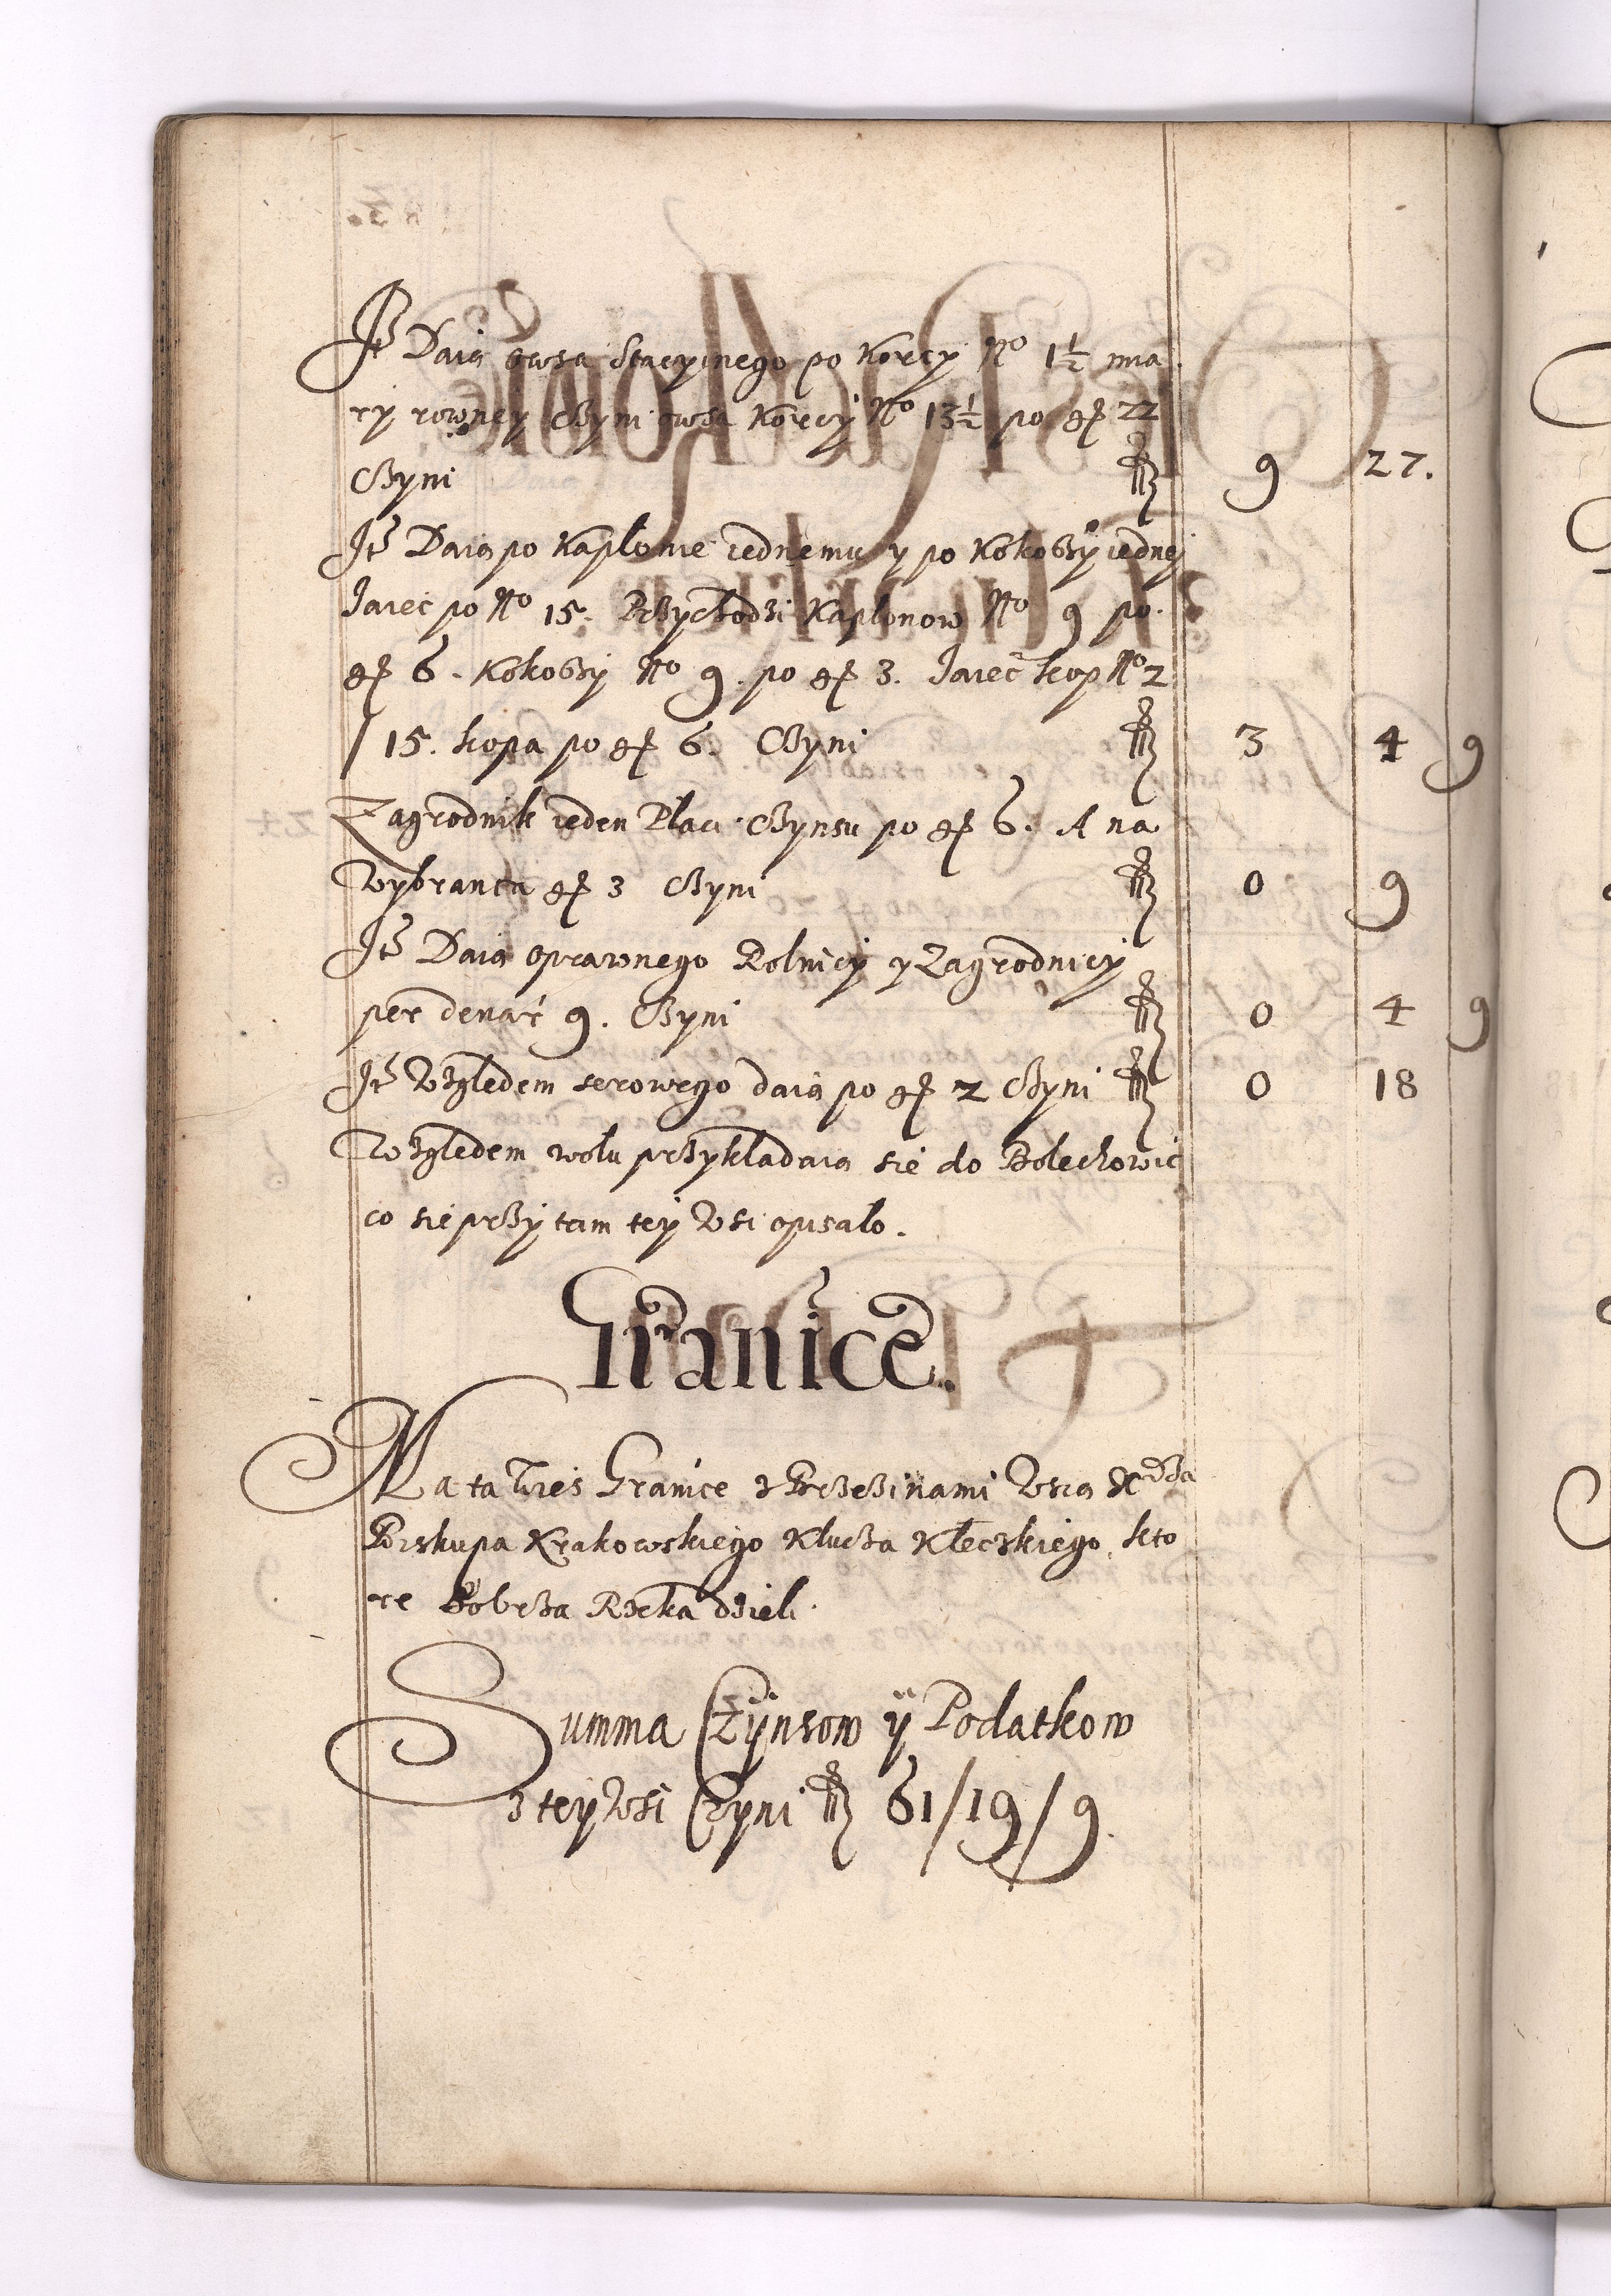 Itẽ Daią owsa Stacyinego po Korcy Nº 1½ mia
ry rowney Czyni owsa Korcy Nº 13½ po gr 22
Czyni fl 9 27.
Itẽ Daią po Kapłonie iednemu y po Kokoszy iedney
Jaiec po Nº 15. Przychodzi Kapłonow Nº 9 po
gr 6. Kokoszy Nº 9. po gr 3. Jaiec kop Nº 2
/ 15. kopa po gr 6. Czyni fl 3 4 9
Zagrodnik ieden Płaci Czynsu po gr 6. A na
Wybranca gr 3 Czyni fl 0 9
Itẽ Daią oprawnego Rolnicy y Zagrodnicy
per denar 9. Czyni fl 0 4 9
Itẽ Względem serowego daią po gr 2 Czyni fl 0 18
Względem wołu przykładaią się do Bolechowic
co się przy tam tey Wsi opisało.
Granice.
Ma ta Wies Granice z Brzezinami Wsią Xdza
Biskupa Krakowskiego Klucza Kleczkiego, kto
re Dobrza Rzeka dzieli.
Summa Czÿnsow ÿ Podatkow
z tey Wsi Czyni fl 61/19/9.